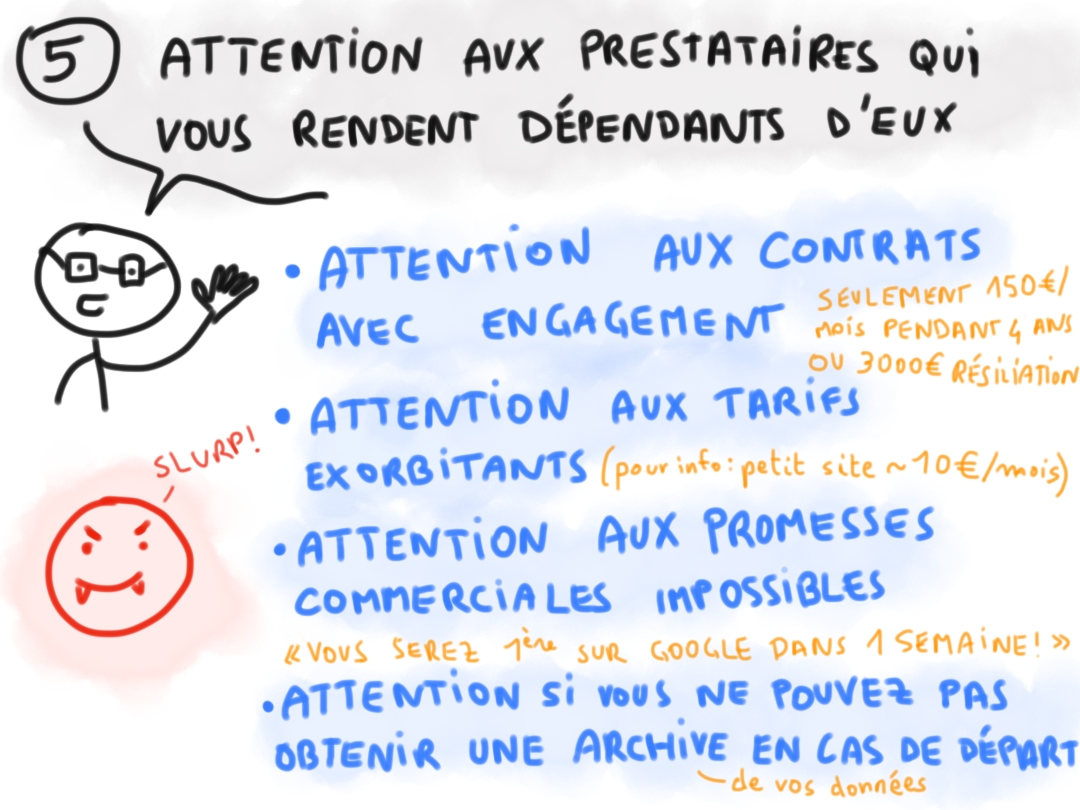 5 ATTENTION AUX PRESTATAIRES QUI
VOUS RENDENT DÉPENDANTS D'EUX
• ATTENTION AUX CONTRATS
AVEC ENGAGEMENT
SEULEMENT 150€/
MOIS PENDANT 4 ANS
OU 3000€ RÉSILIATION
• ATTENTION AUX TARIFS
EXORBITANTS (pour info : petit site ~10€/mois)
SLURP!
• ATTENTION AUX PROMESSES
COMMERCIALES IMPOSSIBLES
« VOUS SEREZ 1ère SUR GOOGLE DANS 1 SEMAINE! »
• ATTENTION SI VOUS NE POUVEZ PAS
OBTENIR UNE ARCHIVE EN CAS DE DÉPART
de vos données